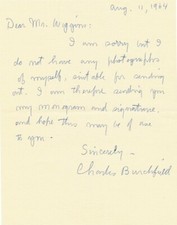 Aug. 11, 1964
Dear Mr. Wiggins:
I am sorry but I
do not have any photographs
of myself, suitable for sending
out. I am therefore sending you
my monogram and signature,
and hope this may be of use
to you.
Sincerely —
Charles Burchfield